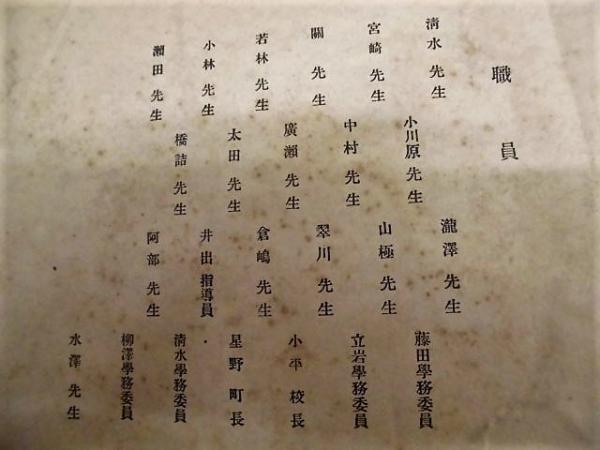 職員
清水先生
宮崎先生
關先生
若林先生
小林先生
瀬田先生
小川原先生
中村先生
廣瀬先生
太田先生
橋詰先生
瀧澤先生
山極先生
翠川先生
倉嶋先生
井出指導員
阿部先生
藤田學務委員
立岩學務委員
小平校長
星野町長
清水學務委員
柳澤學務委員
水澤先生